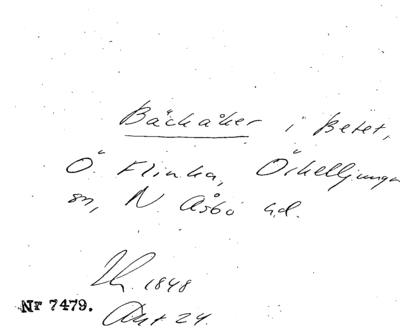 Bäckåker i Betet,
Ö. Flinka, Örkelljunga
sn, N. Åsbo hd.
Lh. 1848
Akt 24.
Nr 7479.